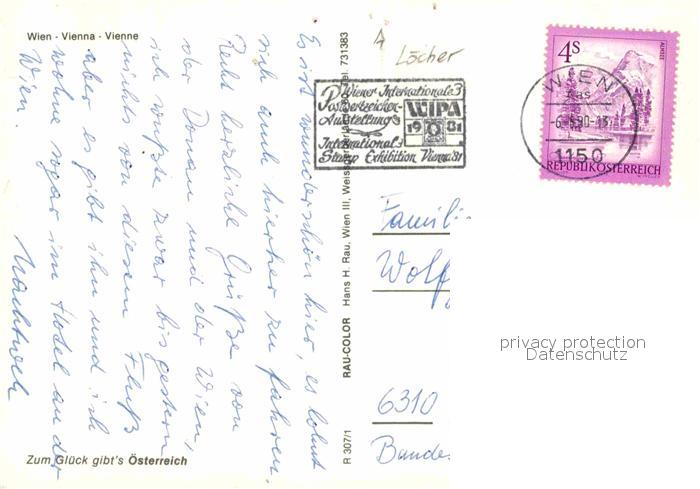 Wien - Vienna - Vienne
Es ist wunderschön hier, es lohnt
sich auch hierher zu fahren.
Recht herzliche Grüße von
der Donau und der Wien,
ich wußte zwar bis gestern
nichts von diesem Fluß
aber es gibt ihn und ich
wohne sogar im Hotel an der
Wien.
Zum Glück gibt's Österreich
RAU-COLOR Hans H. Rau, Wien III, 731383
R 307/1
Löcher
Wiener Internationale
Postwertzeichen-
Ausstellung
WIPA
1981
International
Stamp Exhibition Vienna 81
4S
ALMSEE
REPUBLIK ÖSTERREICH
WIEN
1150
Famili
Wolf
6310
Bande
privacy protection
Datenschutz